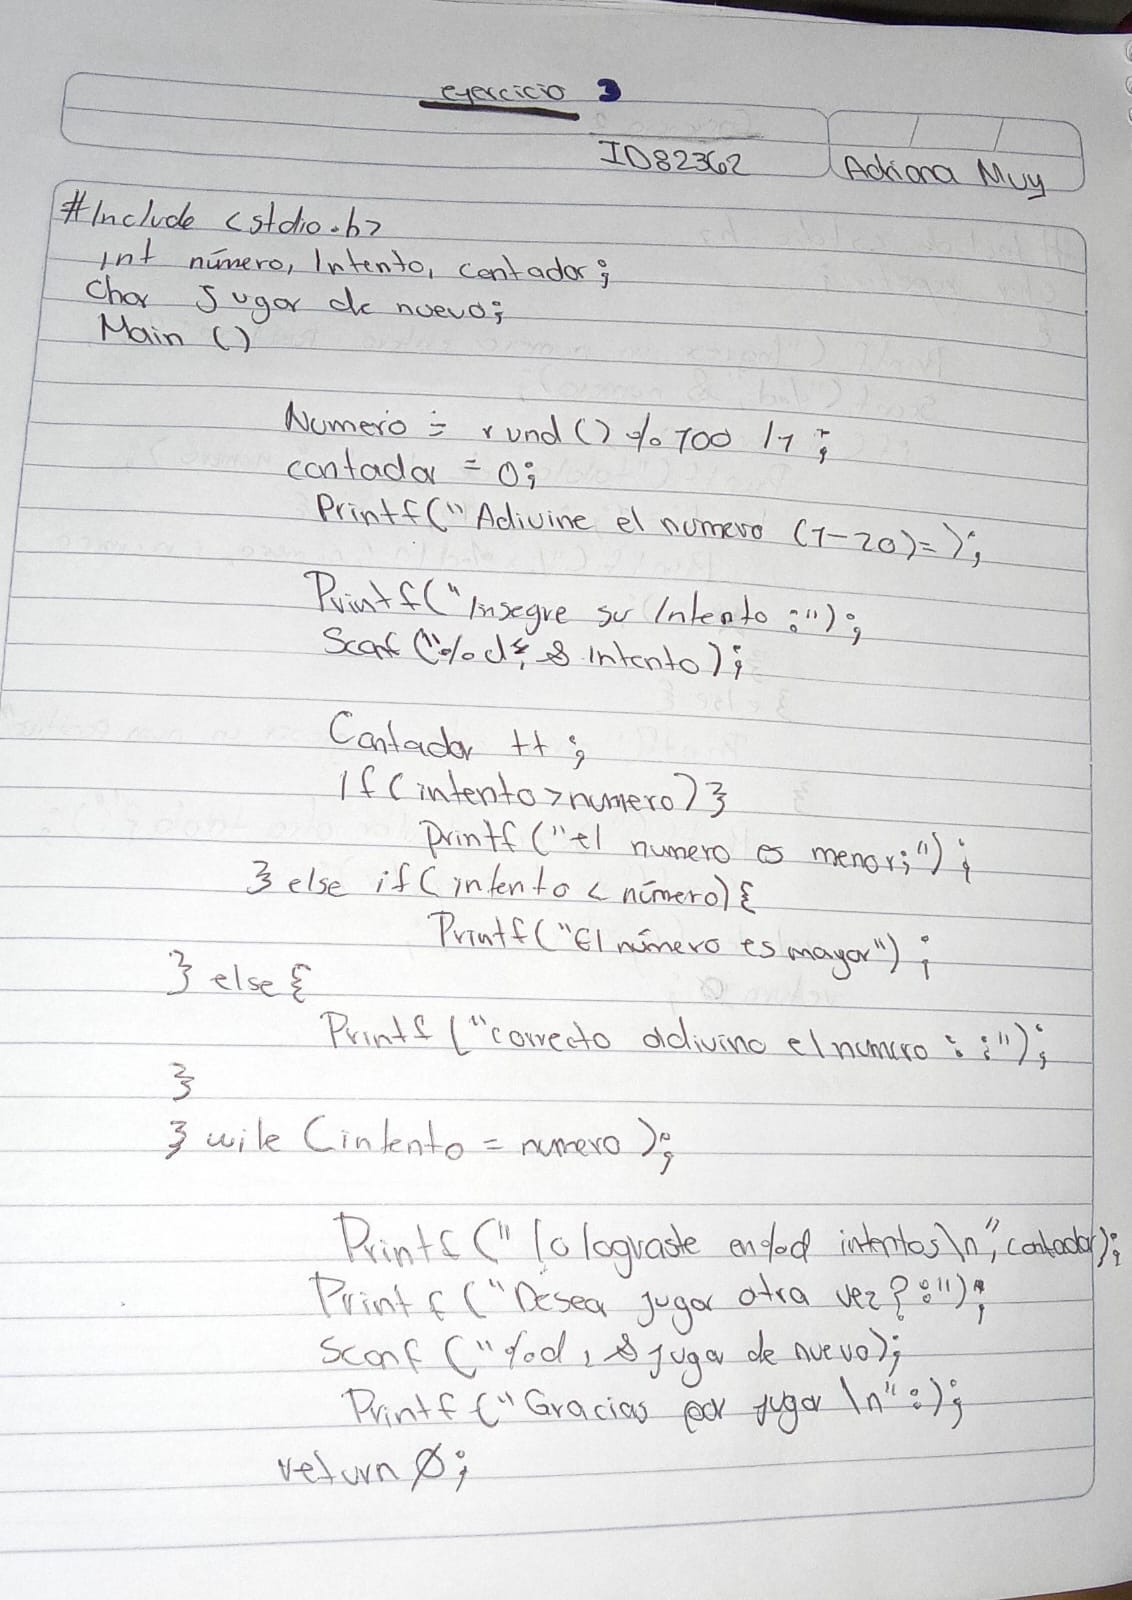 ejercicio 3
ID82362
Adriana Muy
#Include <stdio.h>
int número, Intento, contador;
Char Jugar de nuevo;
Main ()
Numero = rund () % 100 /1 ;
contador = 0;
Printf(" Adivine el numero (1-20)= );
Printf("Insegre su Intento :");
Scanf ("%d", & Intento);
Contador ++ ;
If (intento > numero) }
printf ("el numero es menor;") ;
} else if (intento < número) {
Printf("El número es mayor") ;
} else {
Printf ("correcto adivino el numero : ;");
}
} wile (intento = numero );
Printf (" lo lograste en %d intentos \n", contador);
Printf ("Desea jugar otra vez? :");
Scanf ("%d, & jugar de nuevo);
Printf ("Gracias por jugar \n" :);
return 0;